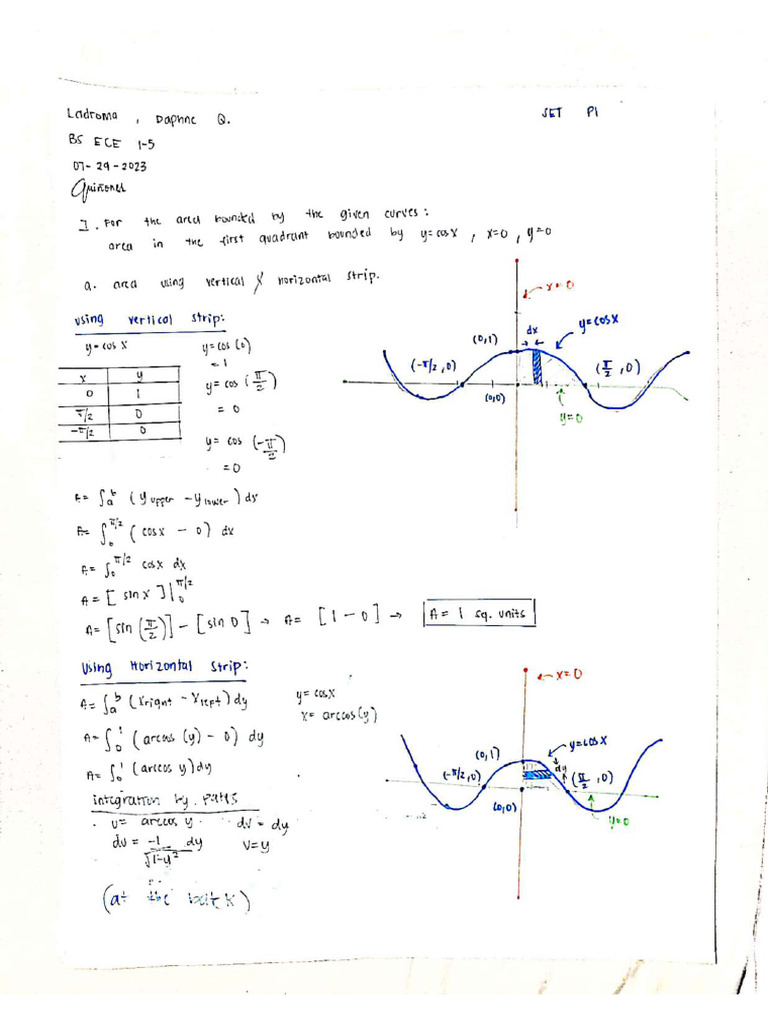 Ladroma, Daphne Q.
SET P1
BS ECE 1-5
07-29-2023
I. For the area bounded by the given curves:
area in the first quadrant bounded by y=cosx, x=0, y=0
a. area using vertical & horizontal strip.
using vertical strip:
y=cos x
x y
0 1
π/2 0
-π/2 0
y=cos(0)
=1
y=cos(π/2)
=0
y=cos(-π/2)
=0
x=0
dx
y=cosx
(0,1)
(-π/2,0)
(π/2,0)
(0,0)
y=0
A=∫ₐᵇ(y upper - y lower)dx
A=∫₀^π/2(cosx - 0)dx
A=∫₀^π/2 cosx dx
A=[sinx]|₀^π/2
A=[sin(π/2)]-[sin 0] → A=[1-0] → A=1 sq. units
Using Horizontal strip:
A=∫ₐᵇ(xright - xleft)dy
A=∫₀¹(arccos(y)-0)dy
A=∫₀¹(arccos y)dy
y=cosx
x=arccos(y)
x=0
y=cosx
(0,1)
dy
(-π/2,0)
(π/2,0)
(0,0)
y=0
integration by parts
u= arccos y dv=dy
du= -1/√1-y² dy v=y
(at the back)